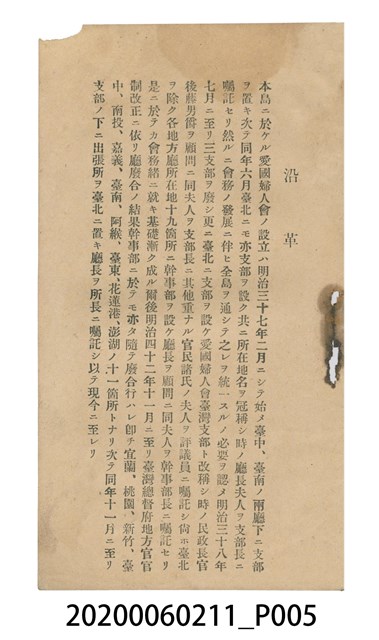 沿革
本島ニ於ケル愛國婦人會ノ設立ハ明治三十七年二月ニシテ始メ臺中、臺南ノ兩廳下ニ支部
ヲ置キ次テ同年六月臺北ニモ亦支部ヲ設ク共ニ所在地名ヲ冠稱シ時ノ廳長夫人ヲ支部長ニ
囑託セリ然ルニ會務ノ發展ニ伴ヒ全島ヲ通シテ之レヲ統一スルノ必要ヲ認メ明治三十八年
七月ニ至リ三支部ヲ廢シ更ニ臺北ニ支部ヲ設ケ愛國婦人會臺灣支部ト改稱シ時ノ民政長官
後藤男爵ヲ顧問ニ同夫人ヲ支部長ニ其他重ナル官民諸氏ノ夫人ヲ評議員ニ囑託シ尙ホ臺北
ヲ除ク各地方廳所在地十九箇所ニ幹事部ヲ設ケ廳長ヲ顧問ニ同夫人ヲ幹事部長ニ囑託セリ
是ニ於テカ會務緒ニ就キ基礎漸ク成ル爾後明治四十二年十一月ニ至リ臺灣總督府地方官官
制改正ニ依リ廳廢合ノ結果幹事部ニ於テモ亦タ隨テ廢合行ハレ卽チ宜蘭、桃園、新竹、臺
中、南投、嘉義、臺南、阿緱、臺東、花蓮港、澎湖ノ十一箇所トナリ次テ同年十一月ニ至リ
支部ノ下ニ出張所ヲ臺北ニ置キ廳長ヲ所長ニ囑託シ以テ現今ニ至レリ
20200060211_P005